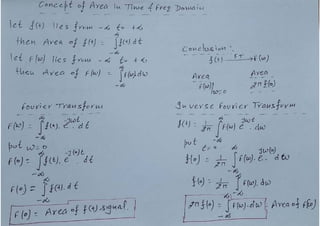 Concept of Area In Time & freq Domain
let f(t) lies from -∞ to +∞
then Area of f(t) = ∫_{-∞}^{∞} f(t) dt
let F(w) lies from -∞ to +∞
then Area of F(w) = ∫_{-∞}^{∞} F(w).dw
Conclusion:
f(t) ⟷ F.T F(w)
Area Area
F(w)|w=0 2π f(0)
Fourier Transform
F(w) = ∫_{-∞}^{∞} f(t). e^{-jwt} dt
put w=0
F(0) = ∫_{-∞}^{∞} f(t). e^{-j(0)t} dt
F(0) = ∫_{-∞}^{∞} f(t). dt
F(0) = Area of f(t) signal
Inverse Fourier Transform
f(t) = 1/2π ∫_{-∞}^{∞} F(w) e^{jwt} dw
put t=0
f(0) = 1/2π ∫_{-∞}^{∞} F(w). e^{jw(0)} dw
f(0) = 1/2π ∫_{-∞}^{∞} F(w). dw
2π f(0) = ∫_{-∞}^{∞} F(w).dw